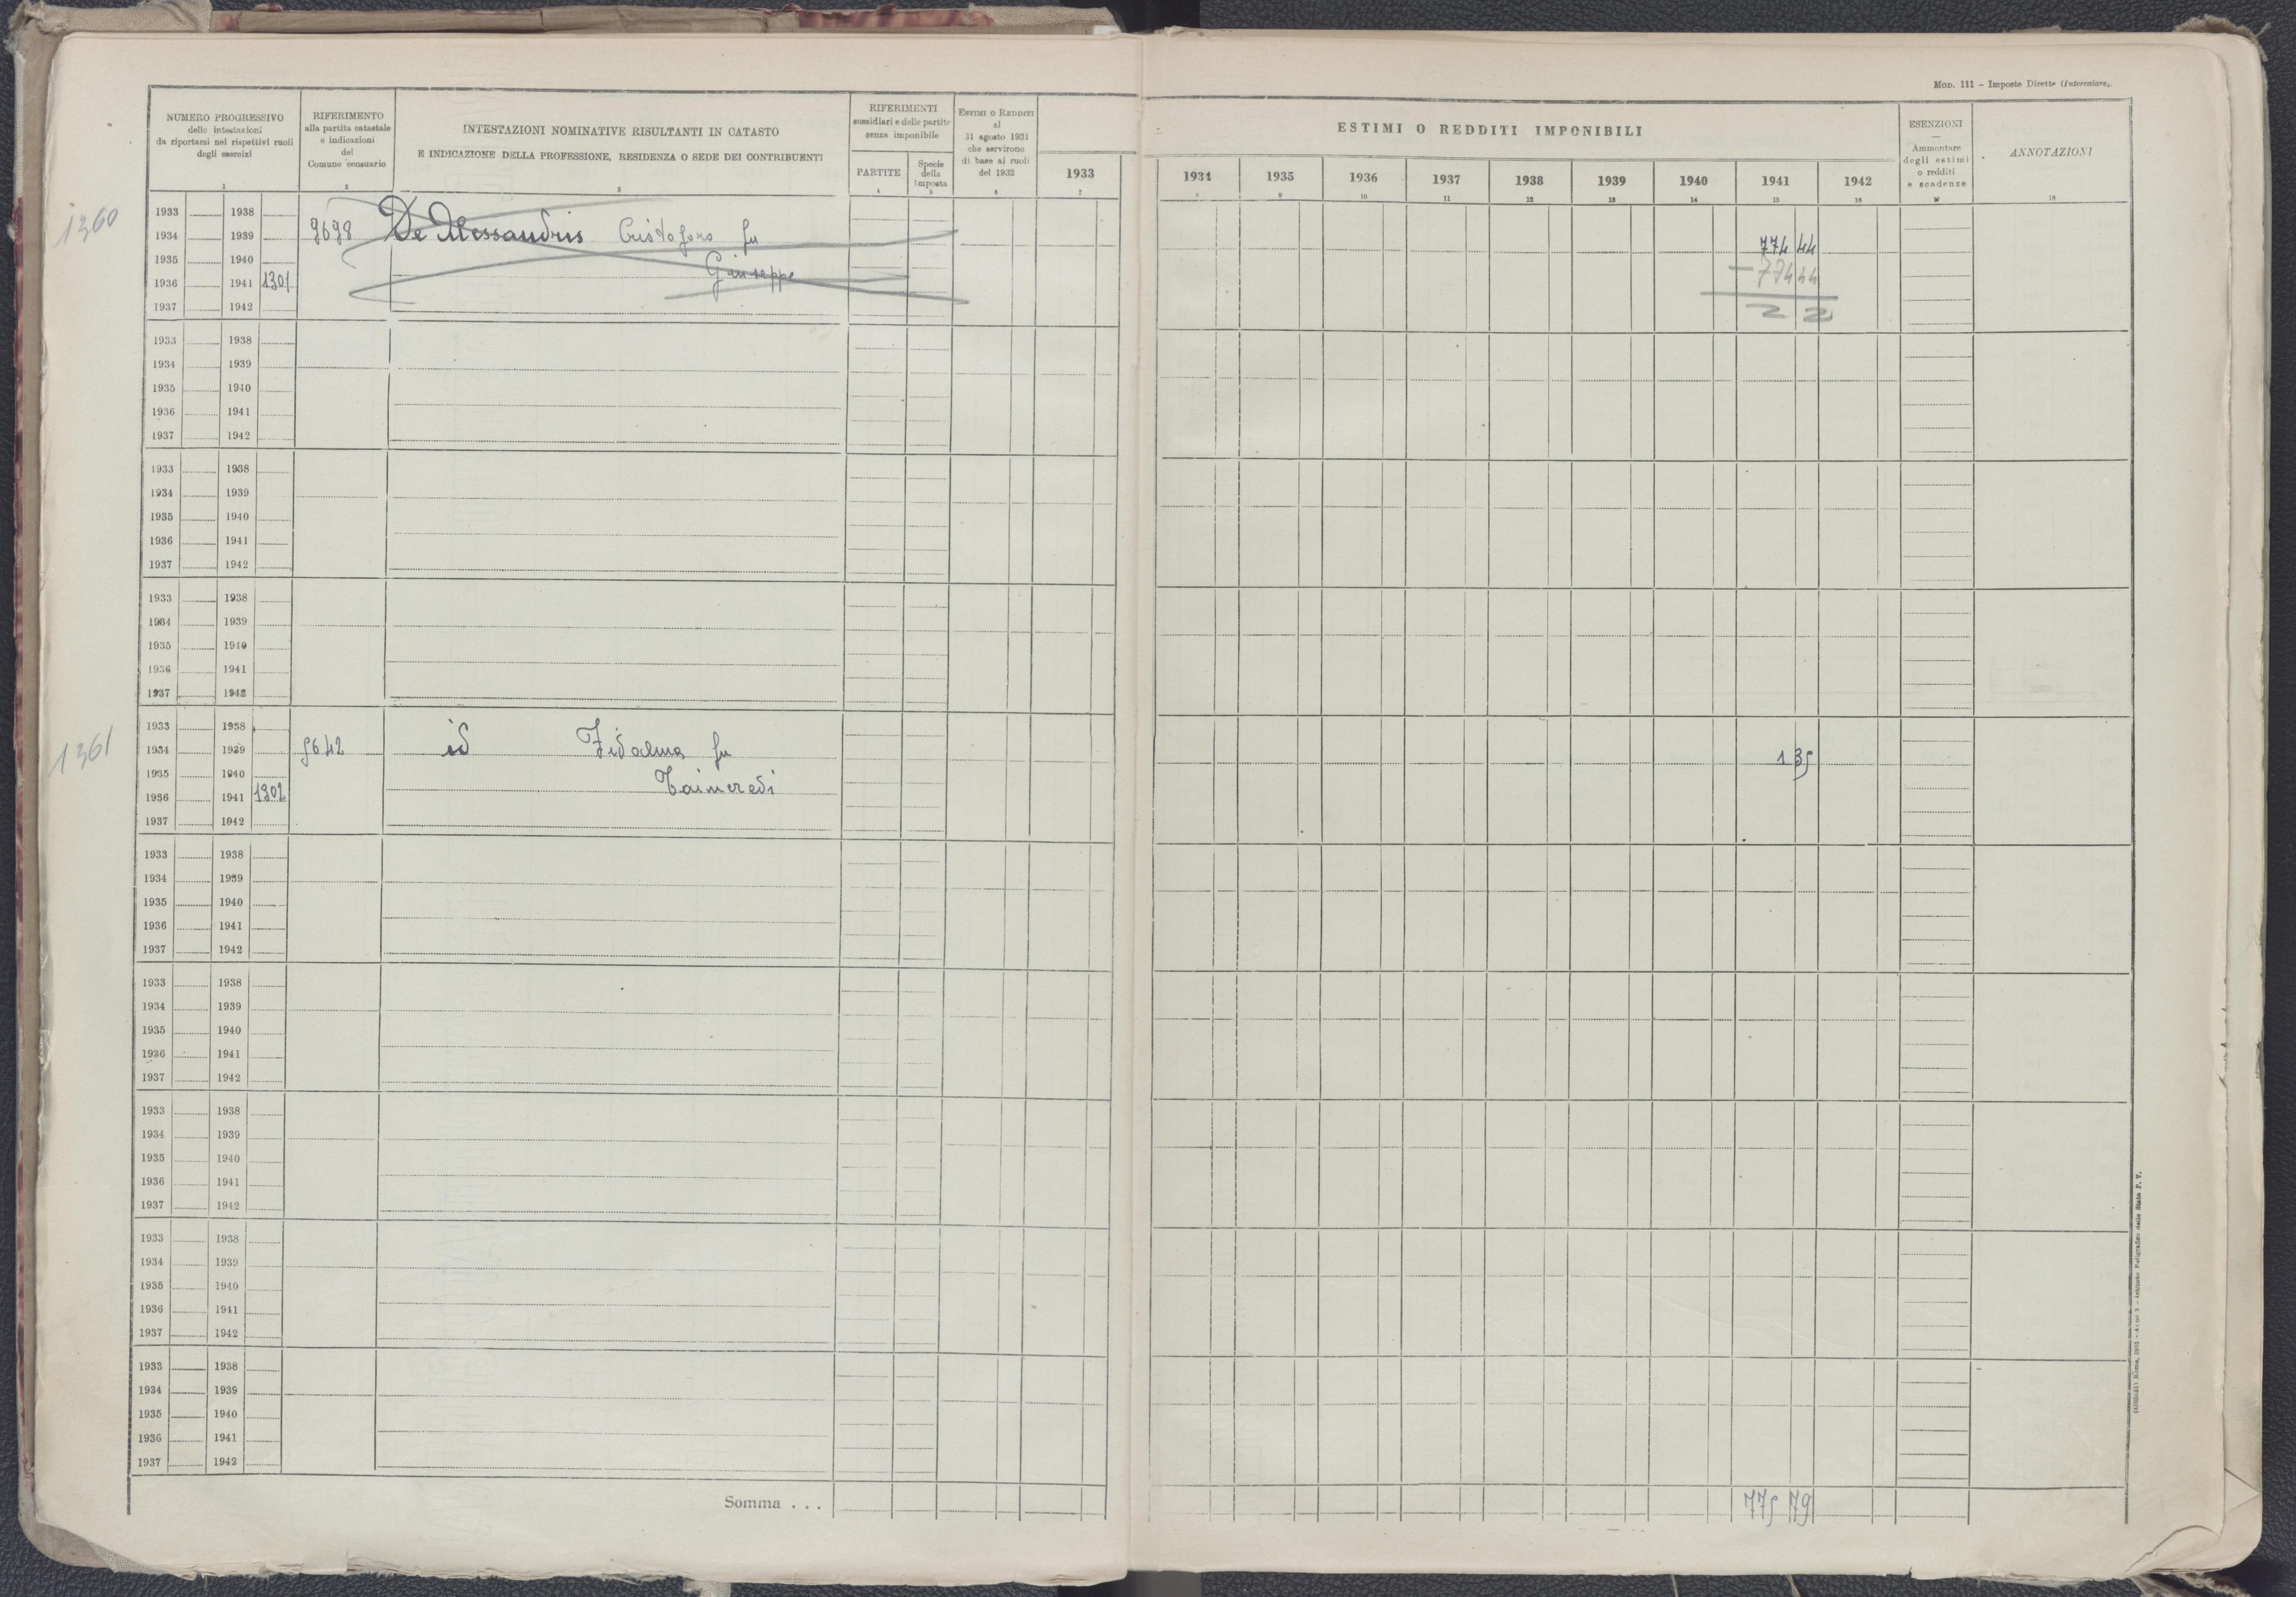 Mod. 111 – Imposte Dirette (Intercalare).
NUMERO PROGRESSIVO
delle intestazioni
da riportarsi nei rispettivi ruoli
degli esercizi
1
RIFERIMENTO
alla partita catastale
e indicazioni
del
Comune censuario
2
INTESTAZIONI NOMINATIVE RISULTANTI IN CATASTO
E INDICAZIONE DELLA PROFESSIONE, RESIDENZA O SEDE DEI CONTRIBUENTI
3
RIFERIMENTI
sussidiari e delle partite
senza imponibile
PARTITE
4
Specie
della
imposta
5
ESTIMI O REDDITI
al
31 agosto 1931
che servirono
di base ai ruoli
del 1932
6
1933
7
ESTIMI O REDDITI IMPONIBILI
1934 1935 1936 1937 1938 1939 1940 1941 1942
8 9 10 11 12 13 14 15 16
ESENZIONI
—
Ammontare
degli estimi
o redditi
e scadenze
ANNOTAZIONI
18
1360
1933 1938
1934 1939 9698 De Alessandris Cristoforo fu 774 44
1935 1940 Giuseppe – 774 44
1936 1941 1301
1937 1942
1933 1938
1934 1939
1935 1940
1936 1941
1937 1942
1933 1938
1934 1939
1935 1940
1936 1941
1937 1942
1933 1938
1934 1939
1935 1940
1936 1941
1937 1942
1361
1933 1938
1934 1939 9642 id Fidalma fu 1 35
1935 1940
1936 1941 1302
1937 1942
1933 1938
1934 1939
1935 1940
1936 1941
1937 1942
1933 1938
1934 1939
1935 1940
1936 1941
1937 1942
1933 1938
1934 1939
1935 1940
1936 1941
1937 1942
1933 1938
1934 1939
1935 1940
1936 1941
1937 1942
1933 1938
1934 1939
1935 1940
1936 1941
1937 1942
Somma . . . 775 79